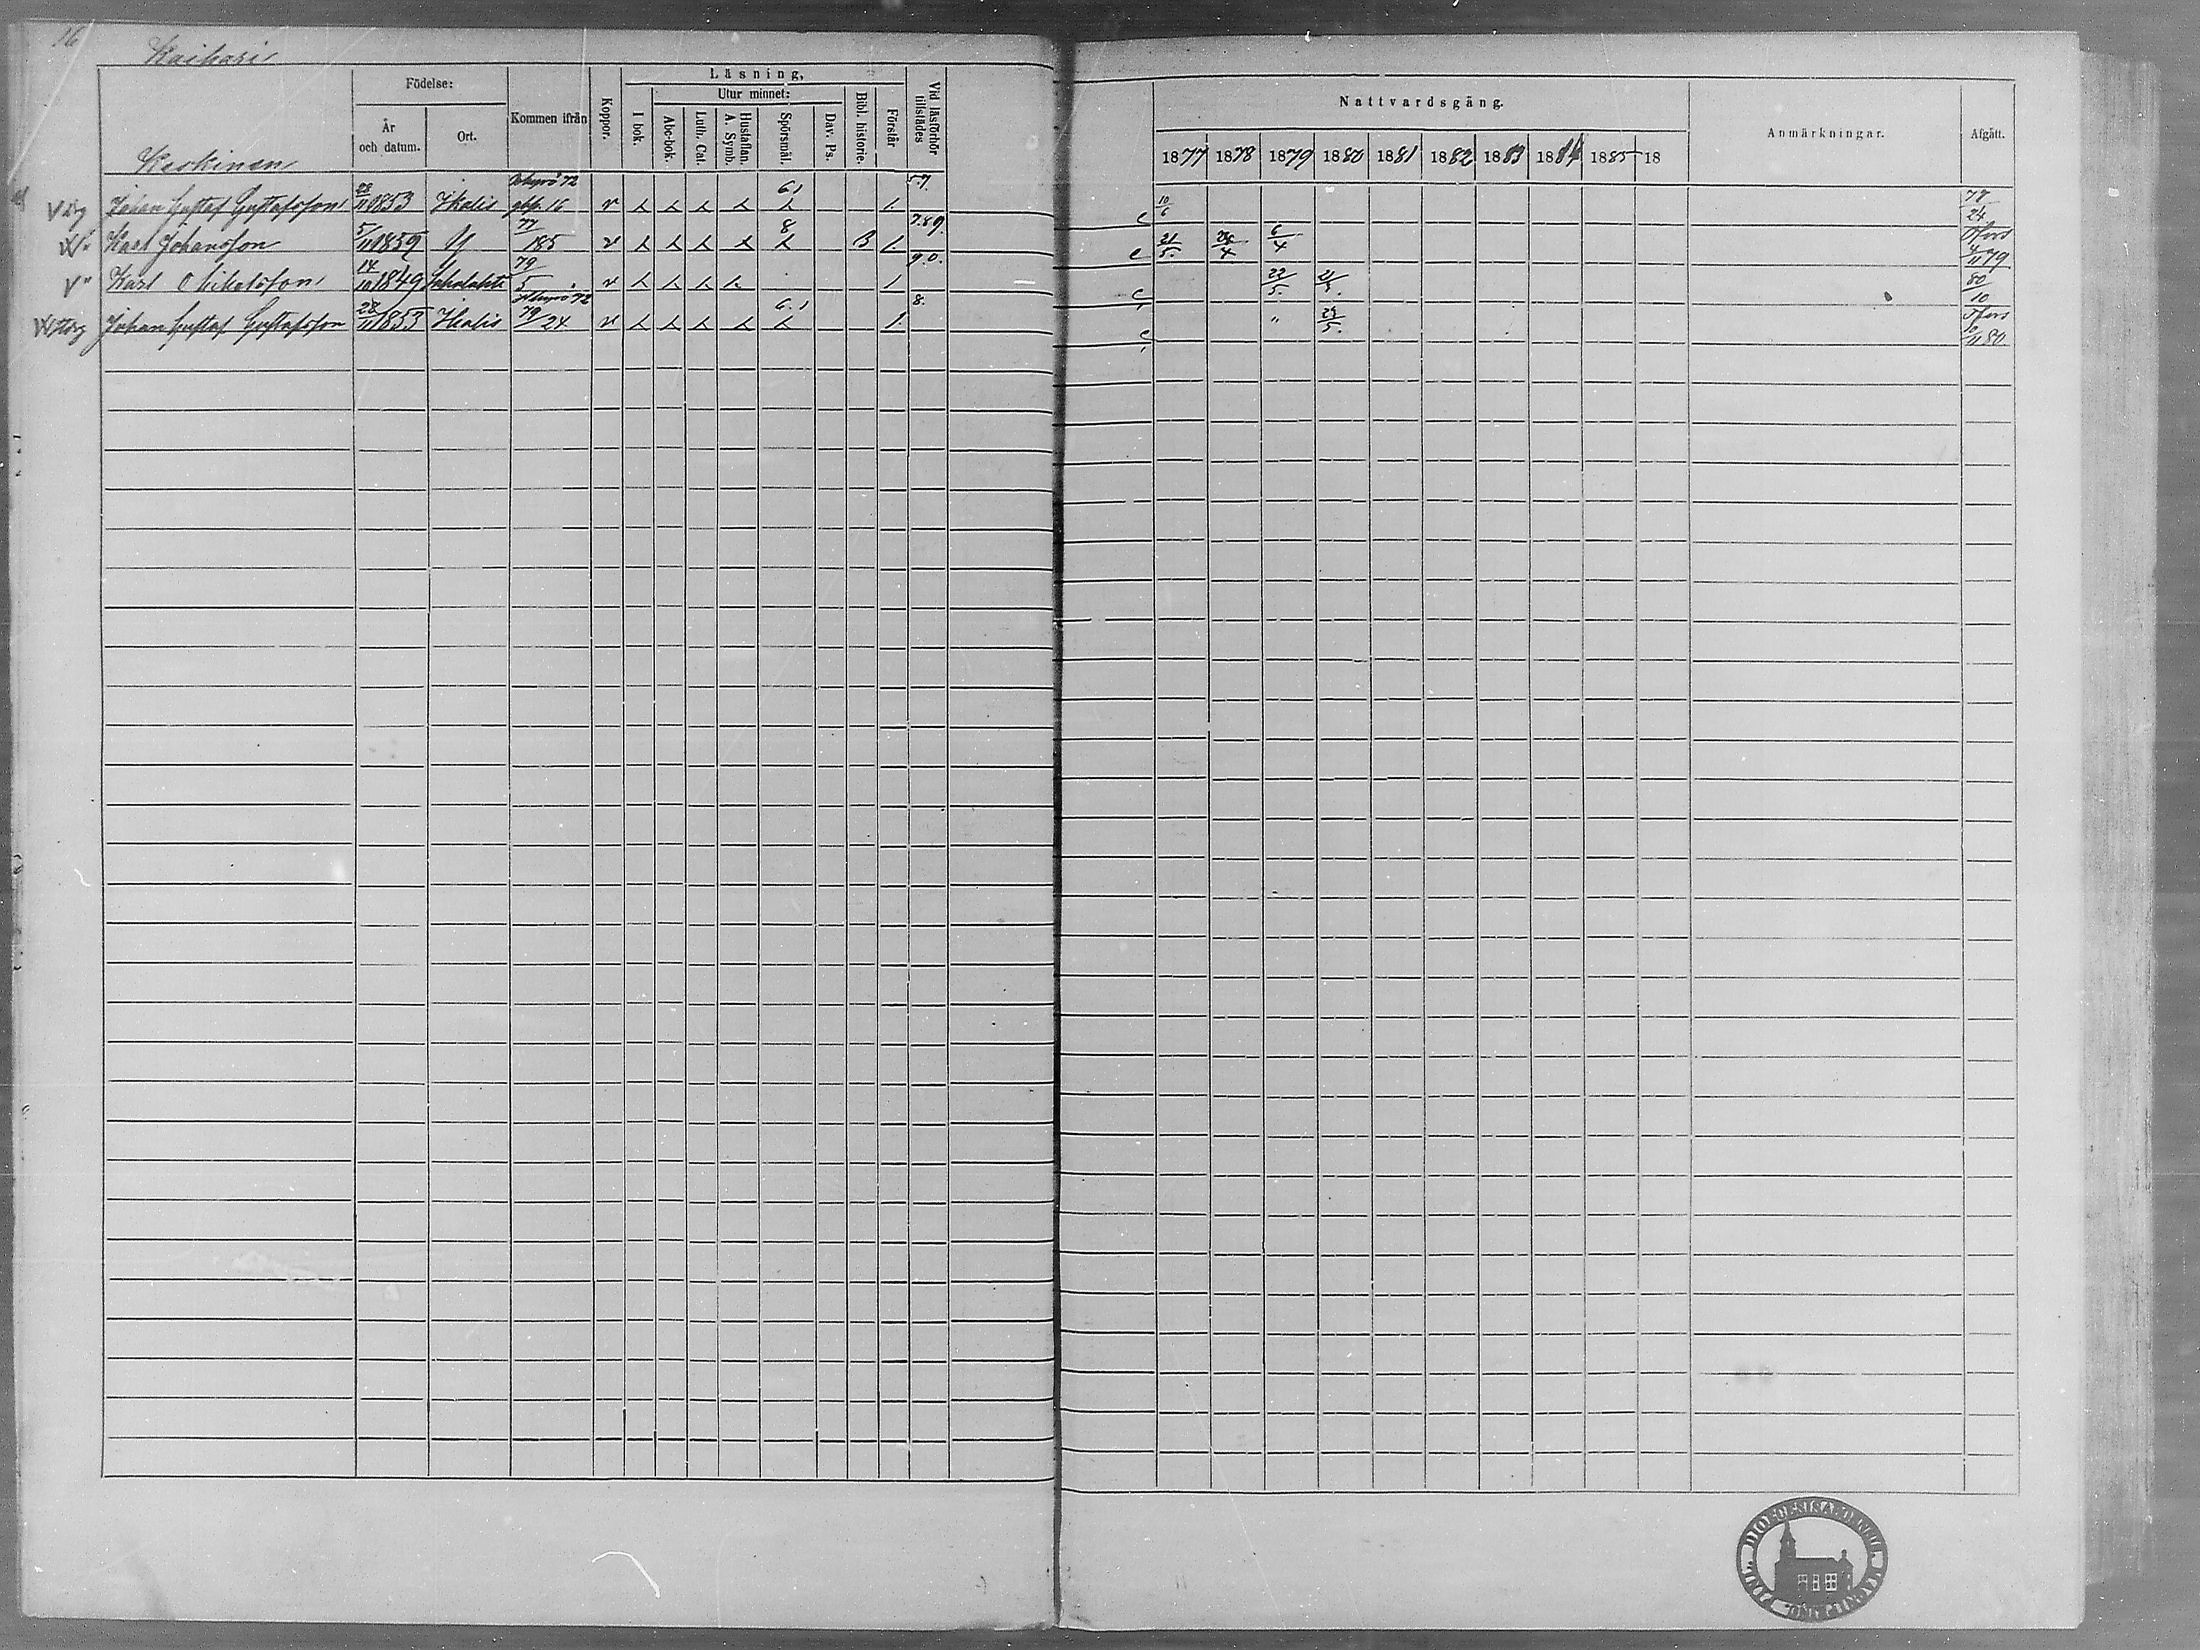 16
Kaihari
Födelse:
Kommen ifrån
Koppor.
Läsning,
Vid läsförhör tillstädes
Nattvardsgång.
Anmärkningar.
Afgått.
År och datum.
Ort.
I bok.
Utur minnet:
Bibl. historie.
Förstår
Abc-bok.
Luth. Cat.
Hustaflan. A. Symb.
Spörsmål.
Dav. Ps.
1877 1878 1879 1880 1881 1882 1883 1884 1885 18
Keskinen
Johan Gustaf Gustafsson 28/11 1853 Ikalis 72 16 v 6.1 1. 5.7. 10/6 24
Karl Johansson 5/11 1859 77/185 v 8 B 1. 7.8.9. 21/5. 6/4 4/11 79
Karl 14/10 1849 79/5 v 1 9.0. 22/5. 80/10
Johan Gustaf Gustafsson 28/11 1853 Ikalis 72 79/24 v 6.1 1. 8. " 23/5. 10/11 80